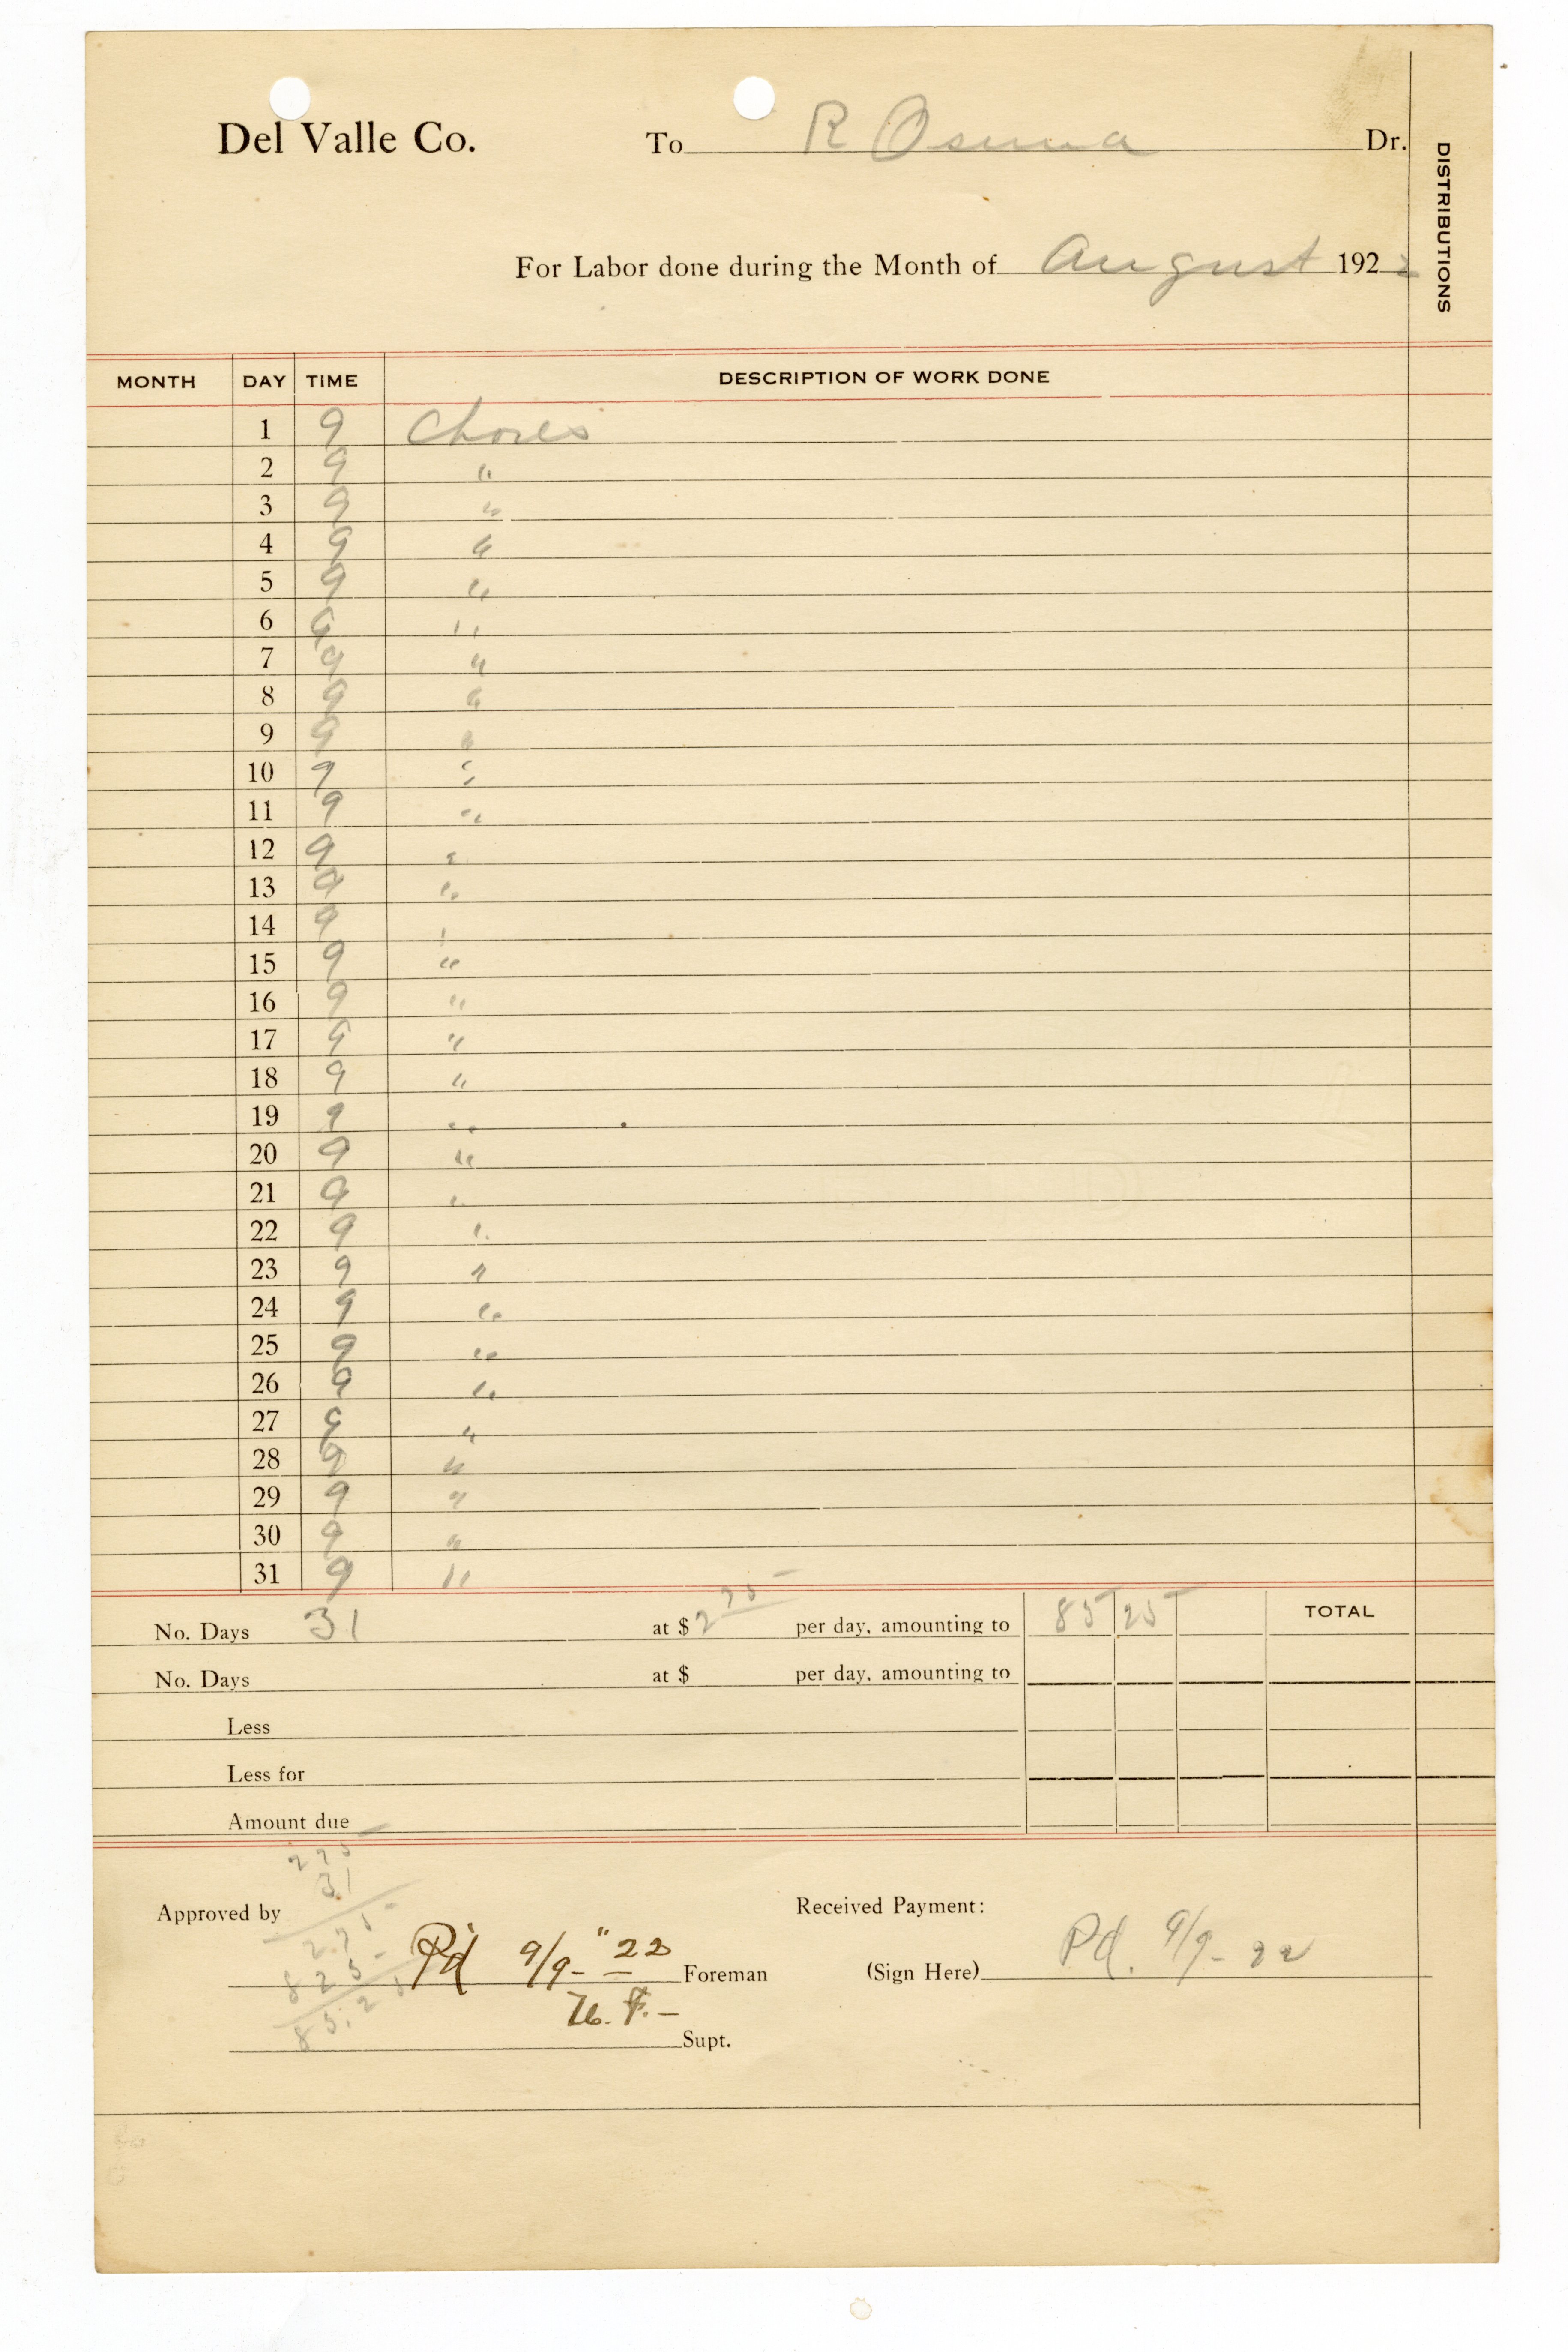 Del Valle Co. To R Osuna Dr.
DISTRIBUTIONS
For Labor done during the Month of August 1922
MONTH DAY TIME DESCRIPTION OF WORK DONE
1 9 Chores
2 9 "
3 9 "
4 9 "
5 9 "
6 9 "
7 9 "
8 9 "
9 9 "
10 9 "
11 9 "
12 9 "
13 9 "
14 9 "
15 9 "
16 9 "
17 9 "
18 9 "
19 9 "
20 9 "
21 9 "
22 9 "
23 9 "
24 9 "
25 9 "
26 9 "
27 9 "
28 9 "
29 9 "
30 9 "
31 9 "
No. Days 31 at $ 2 75 per day, amounting to 85 25 TOTAL
No. Days at $ per day, amounting to
Less
Less for
Amount due
275
31
Approved by Received Payment:
275
825 Pd 9/9-"22 Foreman (Sign Here) Pd. 9/9-22
85.25
Supt.